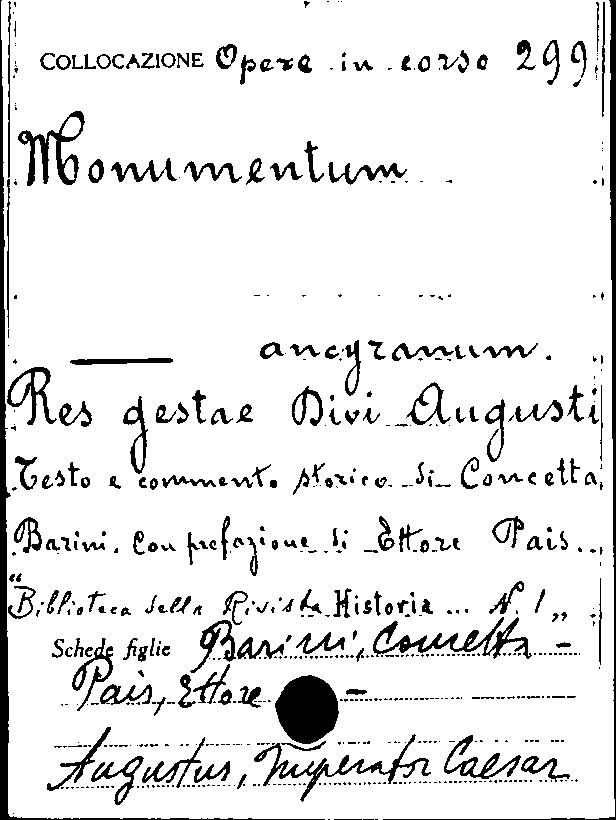 COLLOCAZIONE Opere in corso 299
Monumentum
—— ancyranum.
Res gestae Divi Augusti
Testo e commento storico di Concetta
Barini. Con prefazione di Ettore Pais..
"Biblioteca della Rivista Historia ... N. 1„
Schede figlie Barini, Concetta –
Pais, Ettore –
Augustus, Imperator Caesar